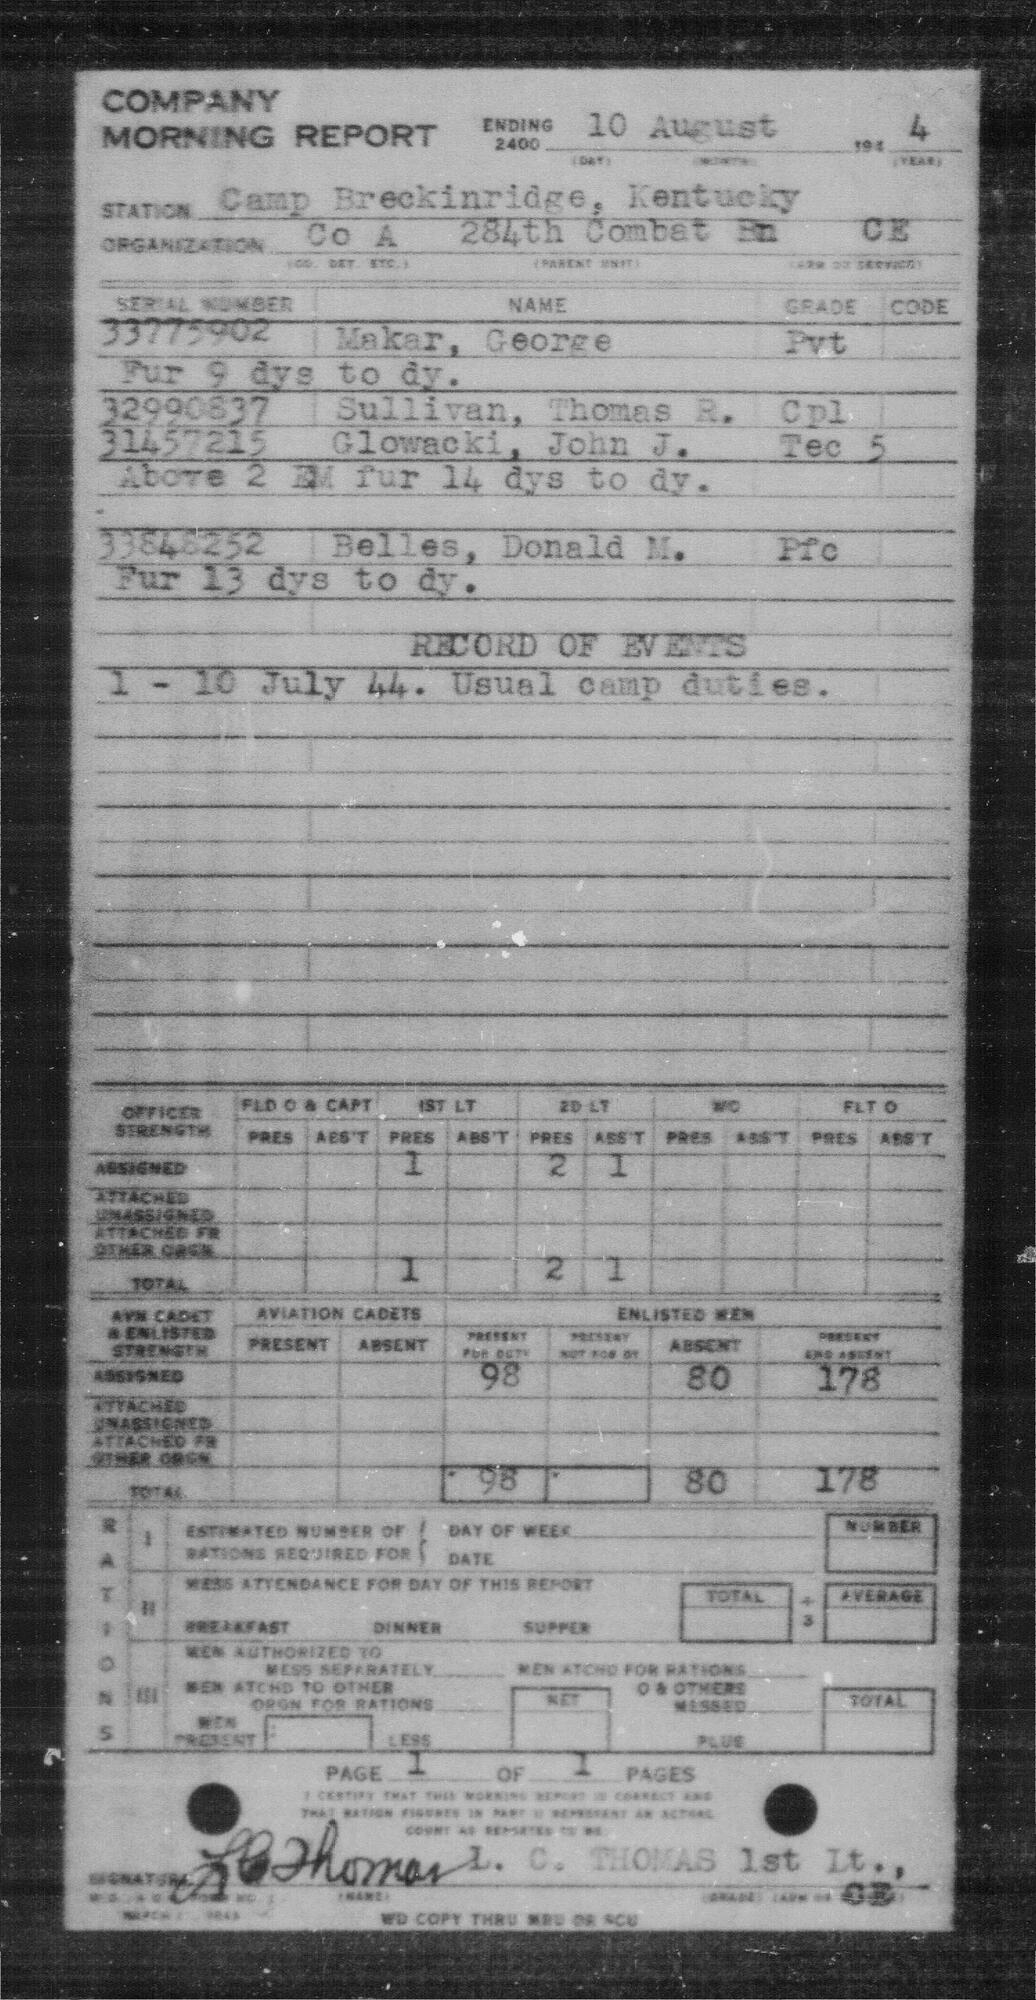 COMPANY
MORNING REPORT ENDING 2400 10 August 194 4
(DAY) (MONTH) (YEAR)
STATION Camp Breckinridge, Kentucky
ORGANIZATION Co A 284th Combat Bn CE
(CO. DET. ETC.) (PARENT UNIT) (ARM OR SERVICE)
SERIAL NUMBER NAME GRADE CODE
33775902 Makar, George Pvt
Fur 9 dys to dy.
32990837 Sullivan, Thomas R. Cpl
31457215 Glowacki, John J. Tec 5
Above 2 EM fur 14 dys to dy.
33848252 Belles, Donald M. Pfc
Fur 13 dys to dy.
RECORD OF EVENTS
1 - 10 July 44. Usual camp duties.
OFFICER STRENGTH FLD O & CAPT 1ST LT 2D LT WO FLT O
PRES ABS'T PRES ABS'T PRES ABS'T PRES ABS'T PRES ABS'T
ASSIGNED 1 2 1
ATTACHED
UNASSIGNED
ATTACHED FR
OTHER ORGN
TOTAL 1 2 1
AVN CADET & ENLISTED STRENGTH AVIATION CADETS ENLISTED MEN
PRESENT ABSENT PRESENT FOR DUTY PRESENT NOT FOR DY ABSENT PRESENT AND ABSENT
ASSIGNED 98 80 178
ATTACHED
UNASSIGNED
ATTACHED FR
OTHER ORGN
TOTAL 98 80 178
RATIONS
I ESTIMATED NUMBER OF DAY OF WEEK NUMBER
RATIONS REQUIRED FOR DATE
II MESS ATTENDANCE FOR DAY OF THIS REPORT TOTAL ÷ 3 AVERAGE
BREAKFAST DINNER SUPPER
III MEN AUTHORIZED TO
MESS SEPARATELY MEN ATCHD FOR RATIONS
MEN ATCHD TO OTHER O & OTHERS
ORGN FOR RATIONS NET MESSED TOTAL
MEN
PRESENT LESS PLUS
PAGE 1 OF 1 PAGES
I CERTIFY THAT THIS MORNING REPORT IS CORRECT AND
THAT RATION FIGURES IN PART II REPRESENT AN ACTUAL
COUNT AS REPORTED TO ME.
SIGNATURE L C Thomas L. C. THOMAS 1st Lt.,
(NAME) (GRADE) CE
WD COPY THRU MRU OR SCU